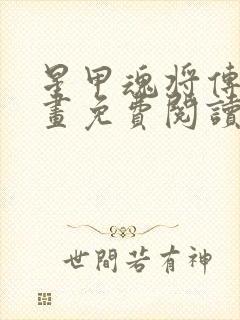 星甲魂将傳
畫免費閱讀
世間若有神